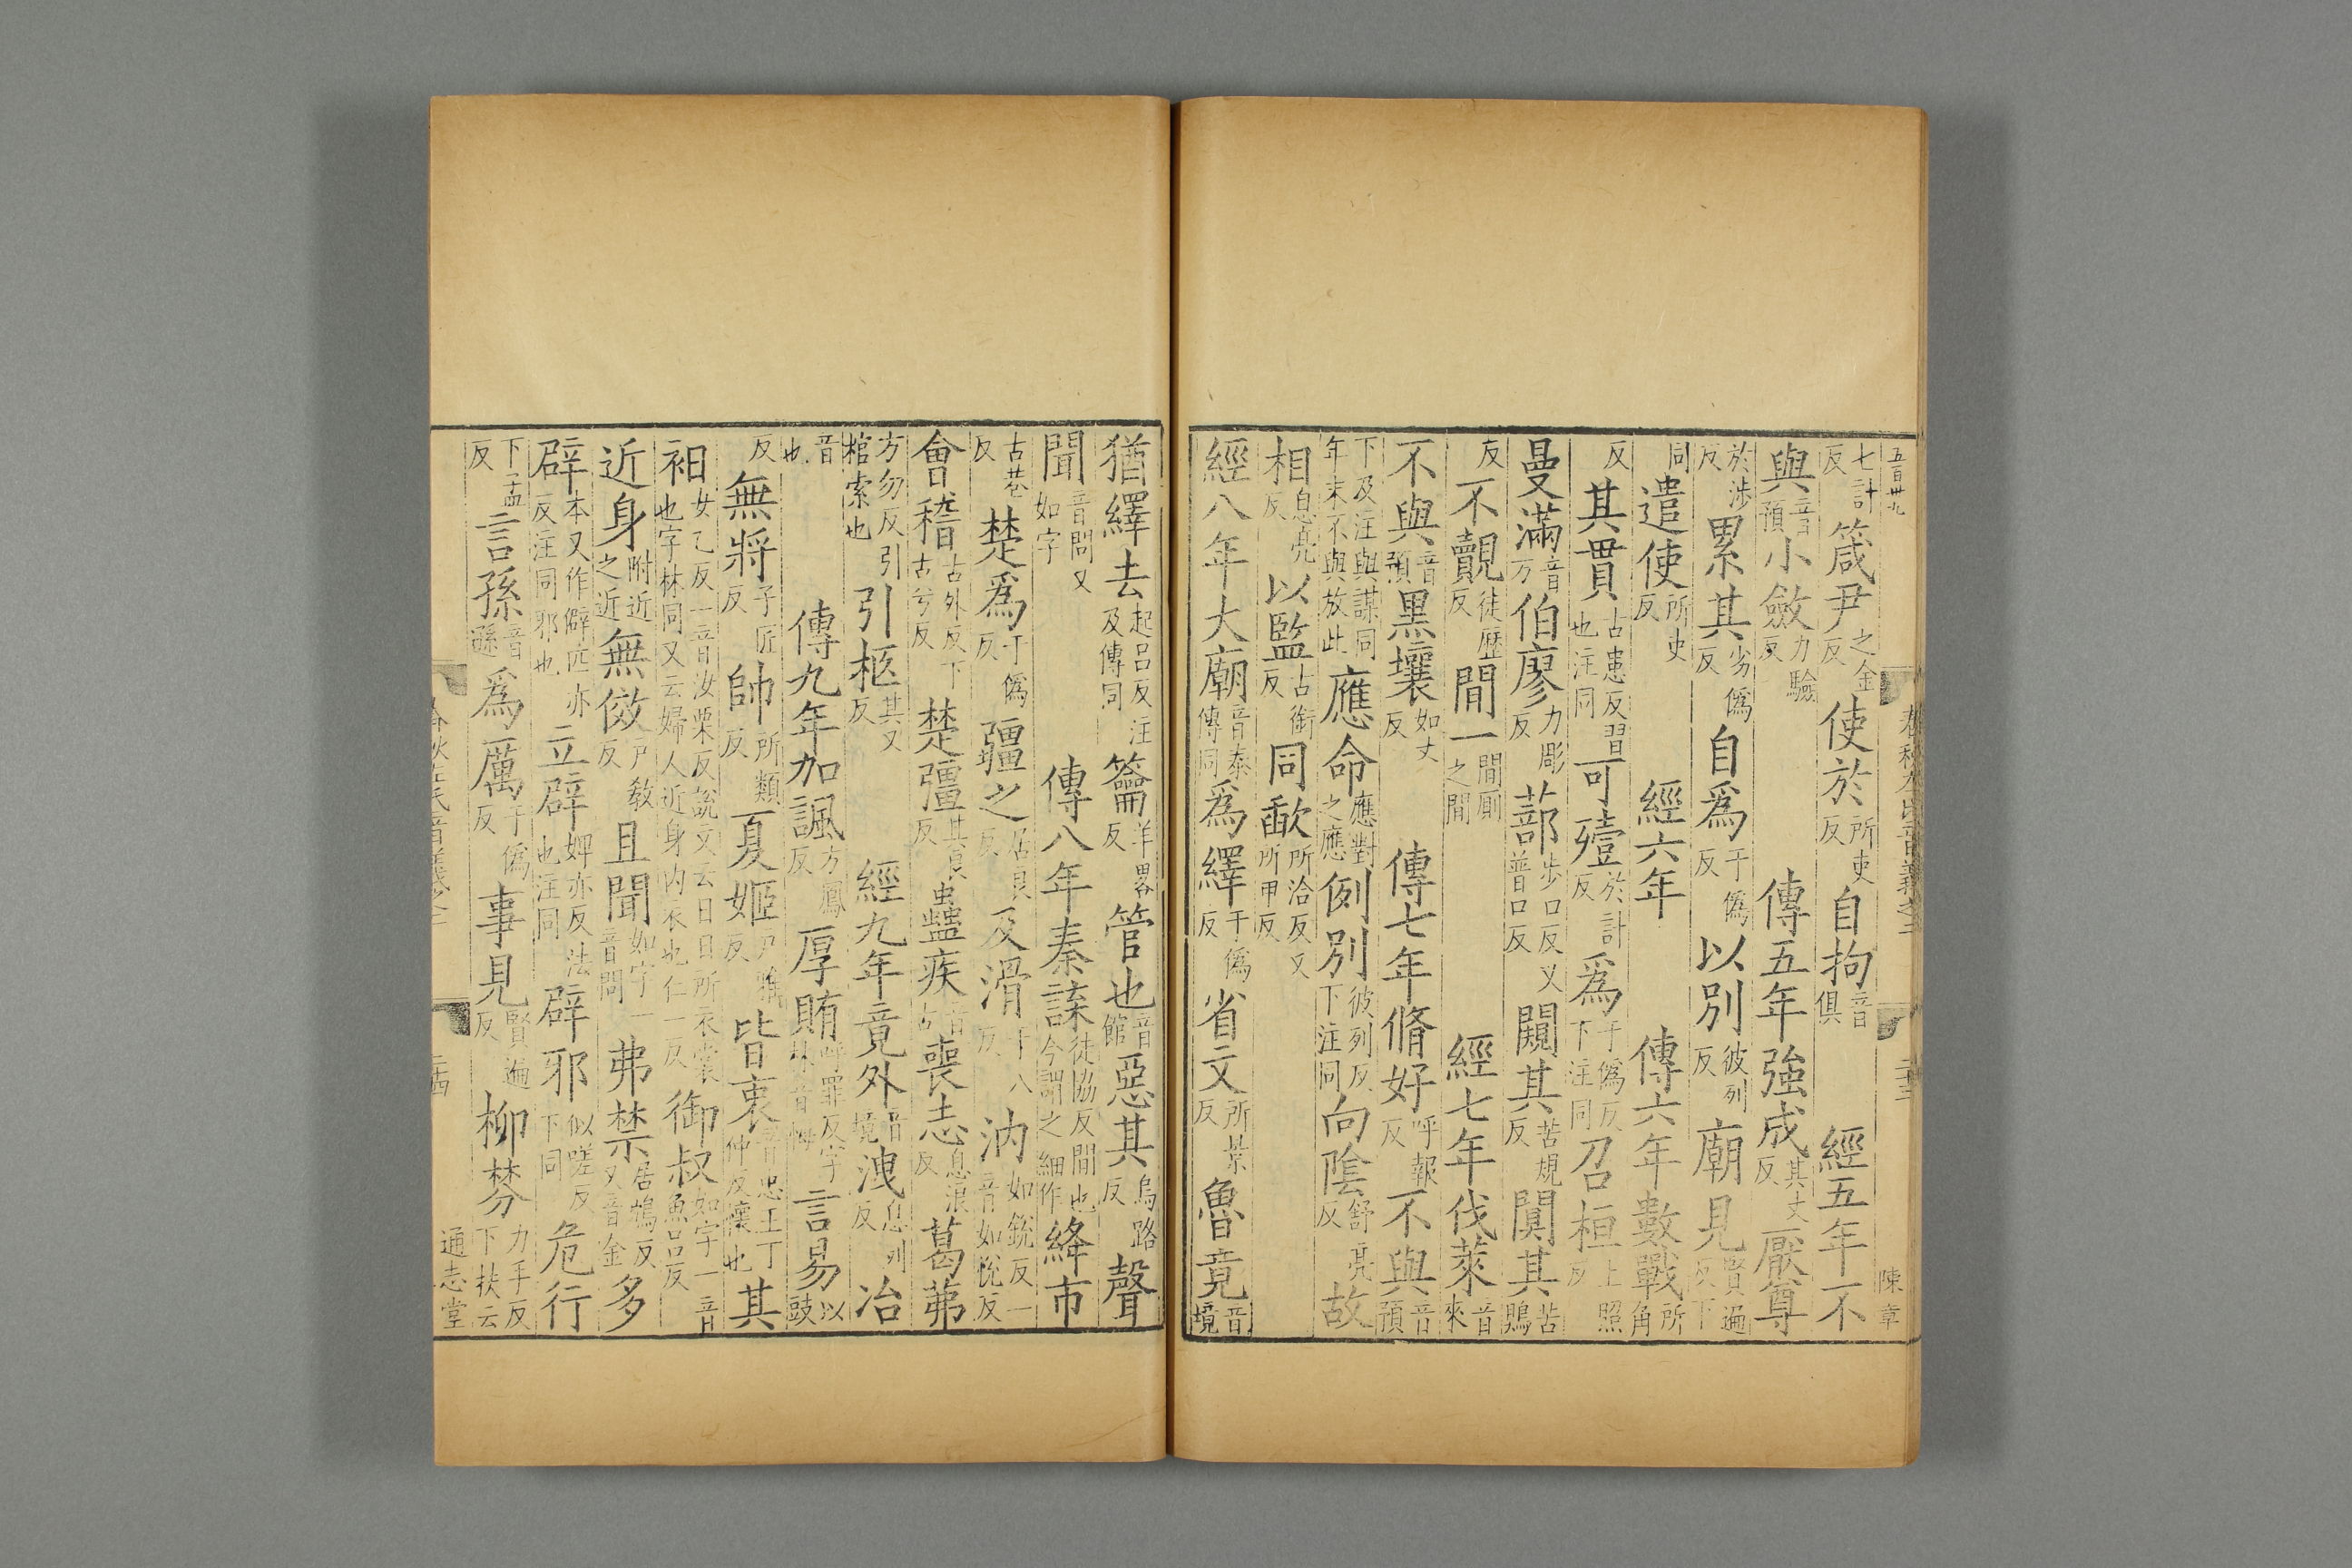 五百卅九
陳章
七計反箴尹之金反使於所吏反自拘音俱經五年不
與音預小斂力驗反傳五年強成其丈反厭尊
於涉反累其劣偽反自為于偽反以別彼列反廟見賢遍反下
同遣使所吏反經六年傳六年數戰所角
反其貫古患反習也注同可殪於計反為于偽反下注同召桓上照反
曼滿音万伯廖力彫反蔀步口反又普口反闚其苦規反闃其苦鵙
反不覿徒歷反間一間廁之間經七年伐萊音來
不與音預黑壤如丈反傳七年脩好呼報反不與音預
下及注與謀同年末不與放此應命應對之應例別彼列反下注同向陰舒亮反故
相息亮反以監古銜反同歃所洽反又所甲反
經八年大廟音泰傳同為繹于偽反省文所景反魯竟音境
猶繹去起呂反注及傳同籥羊畧反管也音館惡其烏路反聲
聞音問又如字傳八年秦諜徒協反間也今謂之細作絳市
古巷反楚為于偽反疆之居良反及滑于八反汭如銳反一音如悅反
會稽古外反下古兮反楚彊其良反蠱疾音古喪志息浪反葛茀
方勿反引棺索也引柩其又反經九年竟外音境洩息列反冶
音也傳九年加諷方鳳反厚賄呼罪反字林音悔言易以豉
反無將子匠反帥所類反夏姬戶雅反皆衷音忠王丁仲反懷也其
衵女乙反一音汝栗反說文云日日所衣裳也字林同又云婦人近身內衣也仁一反御叔如字一音魚呂反
近身附近之近無傚戶敎反且聞如字一音問茀禁居鴆反又音金多
辟本又作僻匹亦反注同邪也立辟婢亦反法也注同辟邪似嗟反下同危行
下孟反言孫音遜為厲于偽反事見賢遍反柳棼力手反下扶云
通志堂